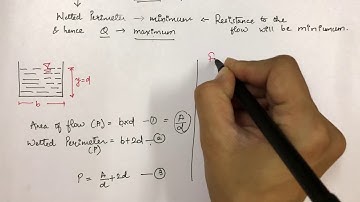 Wetted Perimeter → minimum ← Resistance to the
& hence Q → maximum flow will be minimum.
y=d
b
Area of flow (A) = b×d —① = A/d
Wetted Perimeter = b+2d —②
(P)
P = A/d + 2d —③